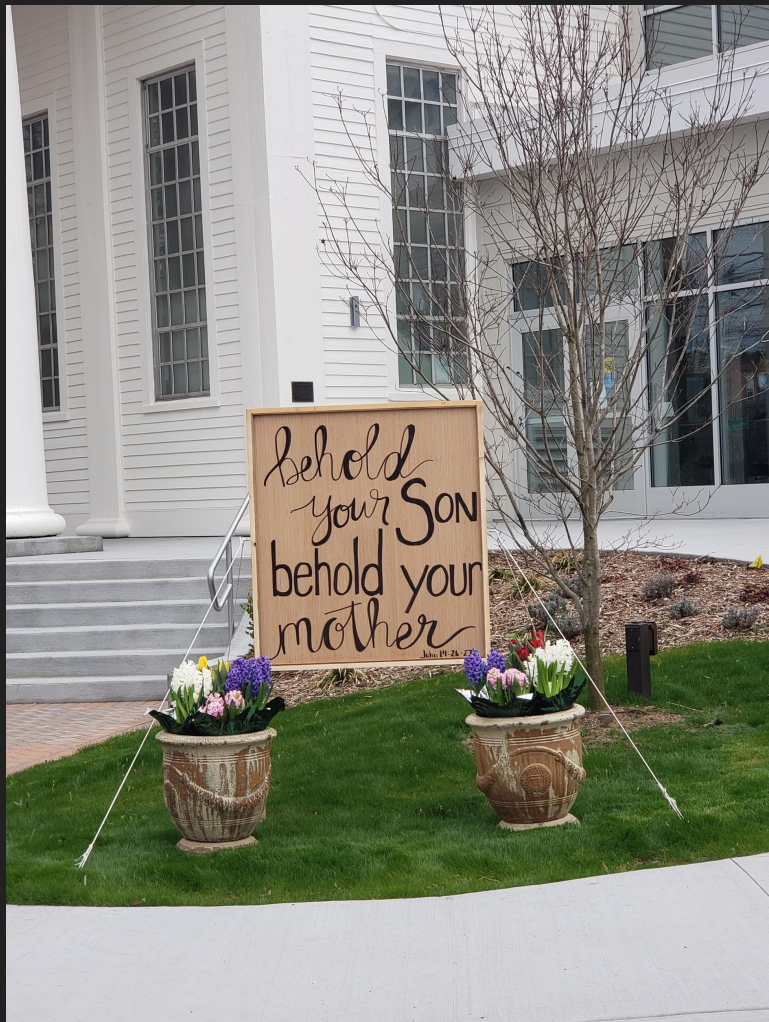 behold
your SON
behold your
mother
John 19:26-27